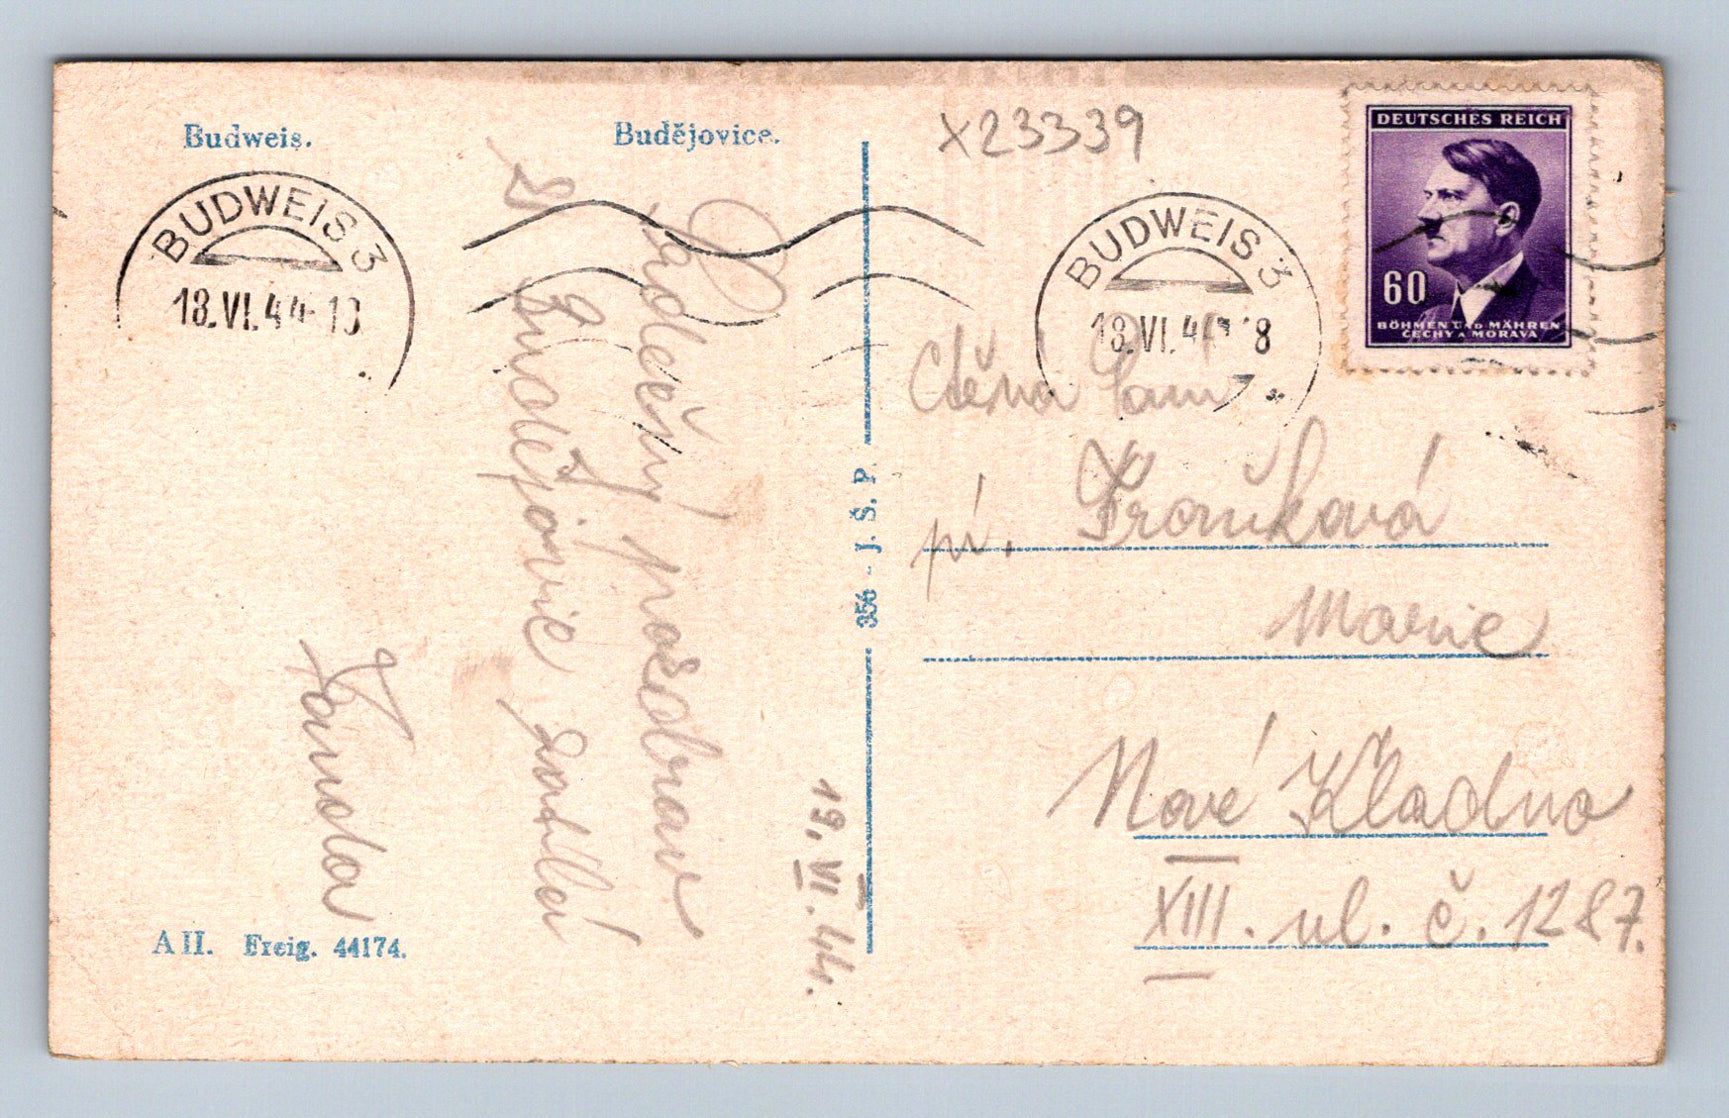 Budweis.
Budějovice.
X23339
BUDWEIS 3
18.VI.44-18
BUDWEIS 3
18.VI.44 18
DEUTSCHES REICH
60
BÖHMEN UND MÄHREN
ČECHY A MORAVA
Srdečný pozdrav
z Budějovic zasílá
Vanda
19. VI. 44.
356 - J. Š. P.
Ctěná Paní
pí.
Marie
Nové Kladno
XIII. ul. č. 1287.
A II. Freig. 44174.